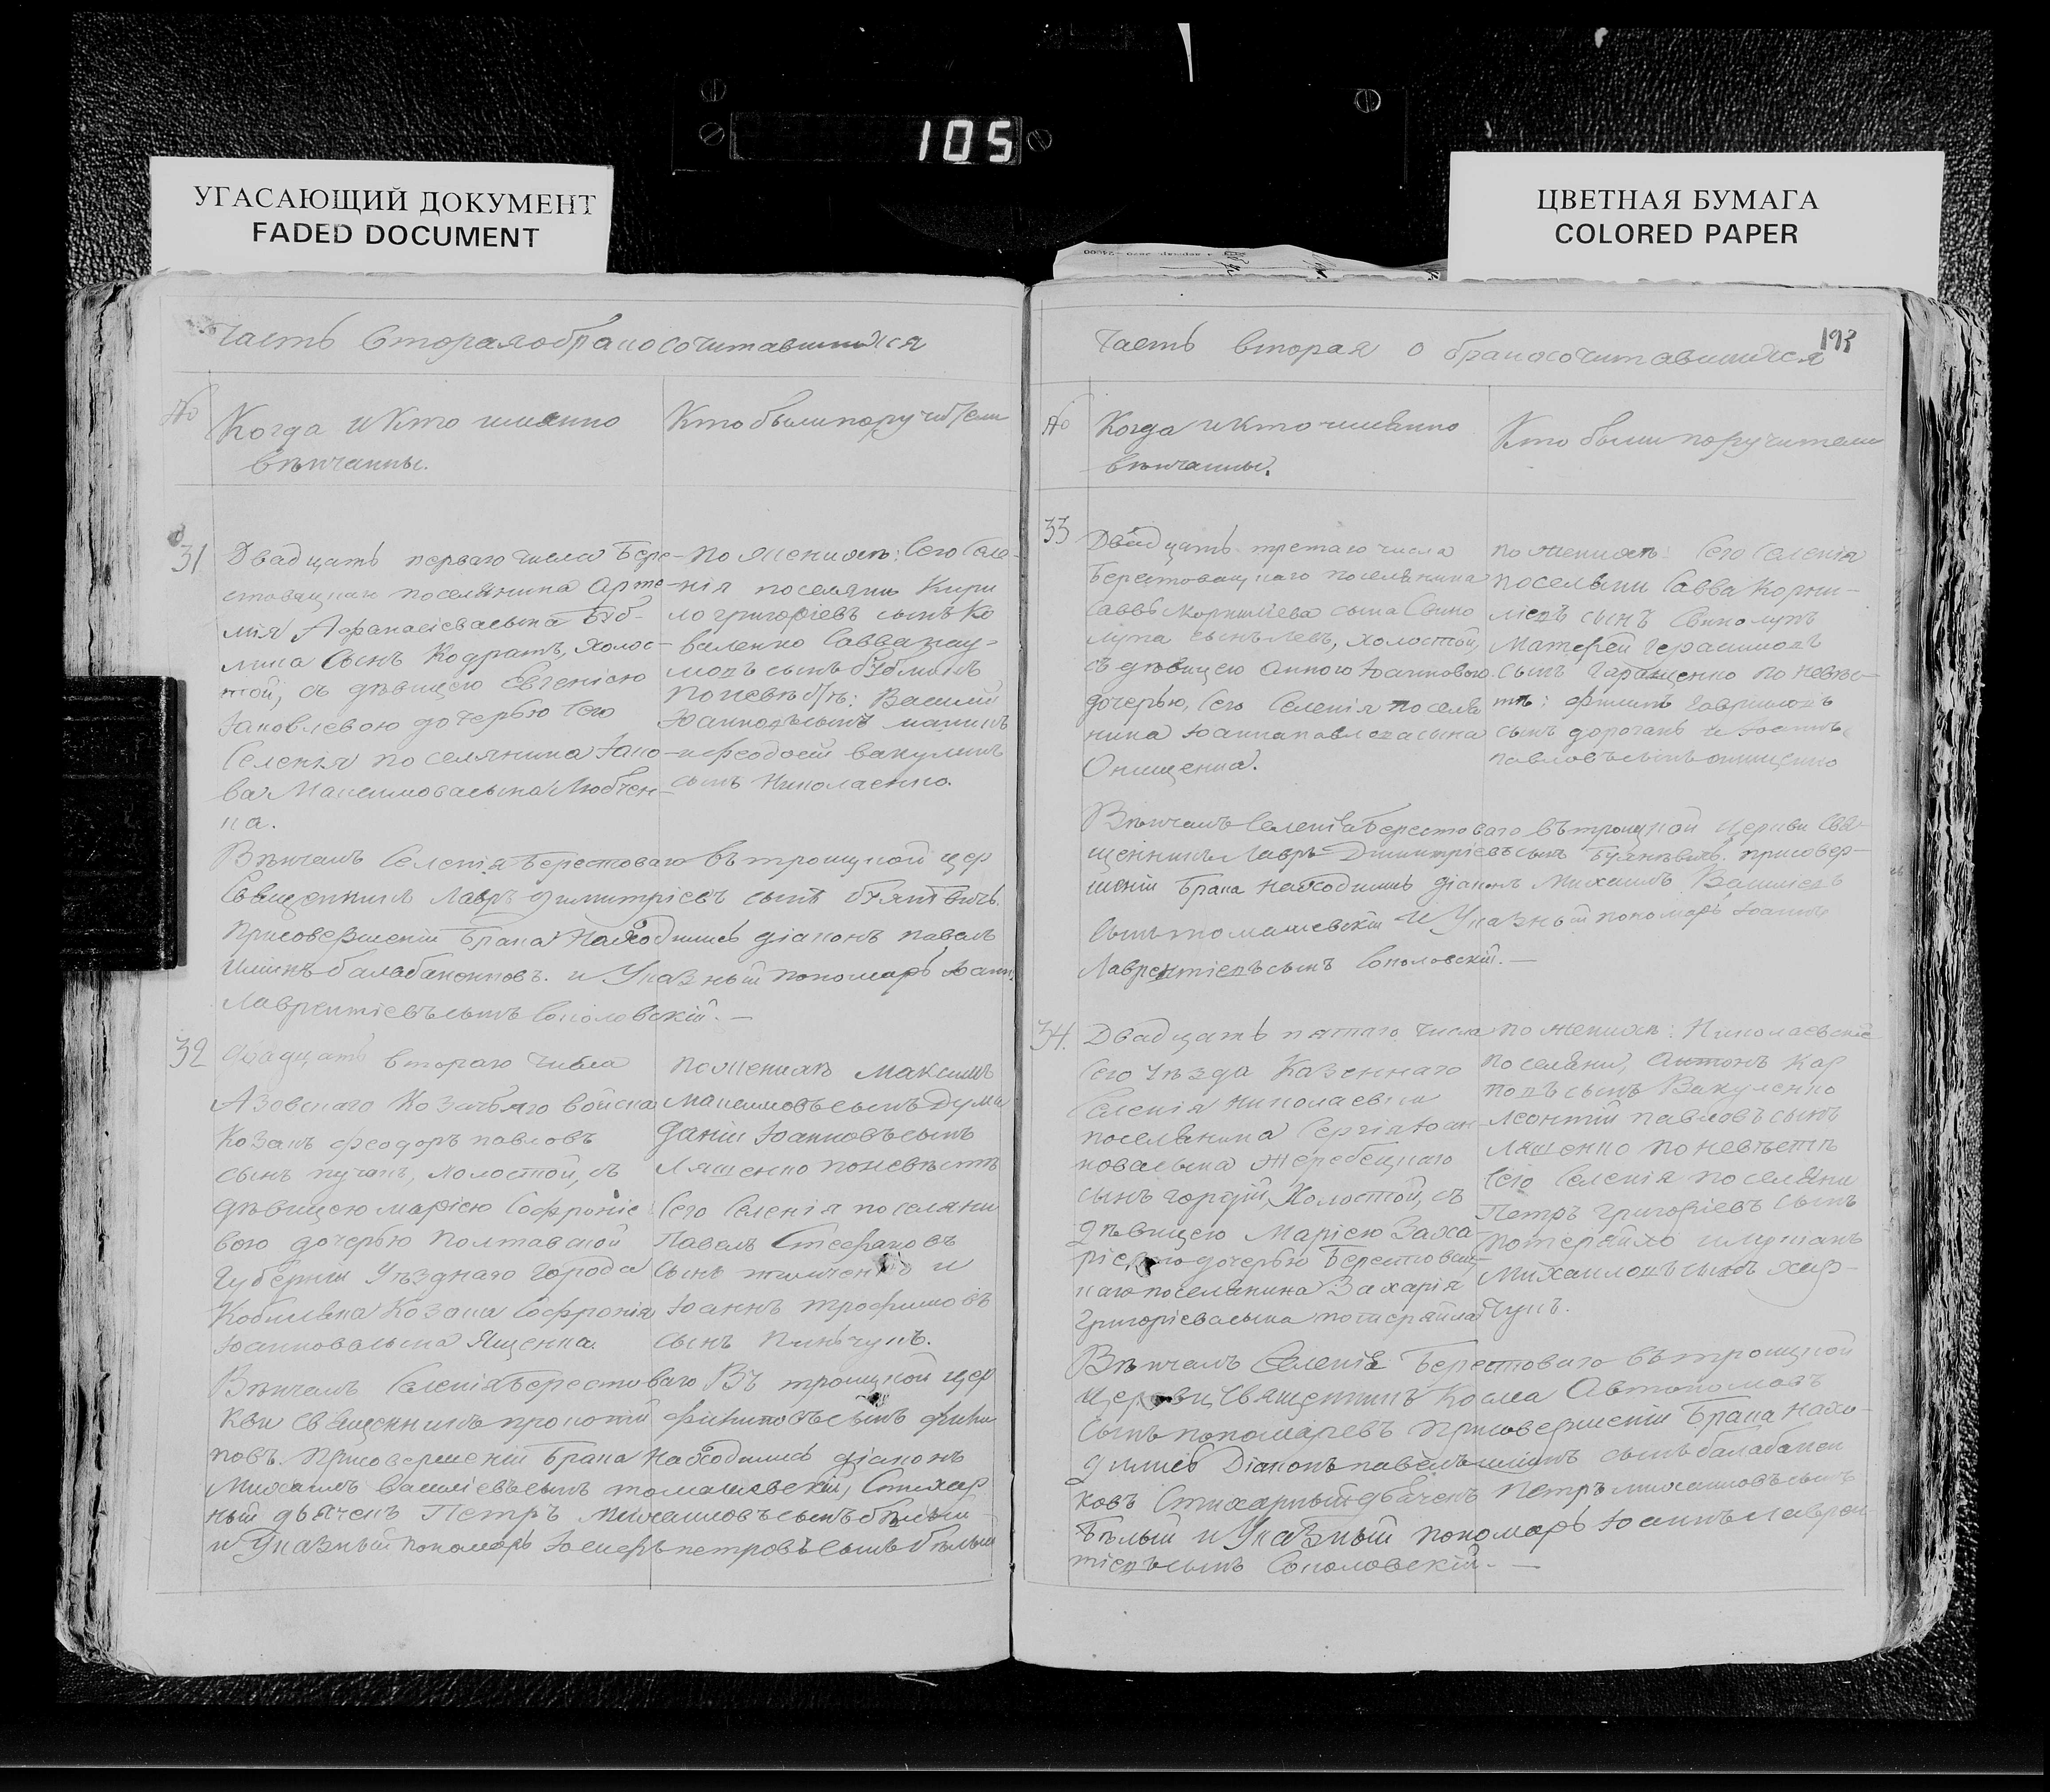 105
УГАСАЮЩИЙ ДОКУМЕНТ
FADED DOCUMENT
ЦВЕТНАЯ БУМАГА
COLORED PAPER
Часть вторая о бракосочитавшихся
№
Когда и кто имянно
вѣнчанны.
Кто были поручители
31
Двадцать перваго числа Бере-
стовацкаго поселянина Арте
мія Афанасіева сына Буб-
лика сынъ Кодратъ, холос-
той, съ дѣвицею Евгеніею
Іаковлевою дочерью сего
селенія поселянина Іако-
ва Максимова сына Любчен-
ка.
по женихѣ: сего селе-
нія поселяни Кири
ло григоріевъ сынъ Ко
валенко Савва
сынъ бубликъ
по невѣстѣ: Василий
Іоанновъ сынъ
и феодосій вакулинъ
сынъ Николаенко.
Вѣнчалъ селенія Берестоваго въ троицкой цер
Священникъ Лавръ Димитріевъ сынъ
при совершеніи Брака находились діаконъ павелъ
илиинъ балабаненковъ. и Указный пономарь Іоаннъ
Лаврентіевъ сынъ Соколовскій. —
32
Двадцать втораго числа
Азовскаго Козачьяго войска
Козакъ феодоръ павловъ
сынъ пугачъ, холостой, съ
дѣвицею маріею Софроніе
вою дочерью полтавской
Губерніи Уѣзднаго Города
Кобиляка Козака Софронія
Іоаннова сына Ященка.
по женихѣ Максимъ
Максимовъ сынъ
даніил Іоанновъ сынъ
Ляшенко по невѣстѣ
Сего Селенія поселяни
Павелъ Стефановъ
сынъ и
Іоаннъ трофимовъ
сынъ Пинчукъ.
Вѣнчалъ Селенія Берестоваго Въ троицкой цер
кви священникъ прокопій филиповъ сынъ фили
повъ. При совершеніи Брака находились діаконъ
Михаилъ Василіевъ сынъ томашевскій, Стихар
ный дьячекъ Петръ михаиловъ сынъ бѣлый
и Указный пономарь петровъ сынъ бѣлый
193
Часть вторая о бракосочитавшихся
№
Когда и кто имянно
вѣнчанны.
Кто были поручители
33
Двадцать третаго числа
Берестовацкаго поселянина
Саввы Корниліева сына Свино
лупа сынъ Левъ, холостой,
съ дѣвицею Анною Іоанновою
дочерью, сего селенія поселя
нина Іоанна павлова сына
Онищенка.
по женихѣ: Сего Селенія
поселяни Савва Корни-
ліевъ сынъ Свинолупъ
Матфей Герасимовъ
сынъ Гаращенко по невѣс-
тѣ: филипъ Гавриловъ
сынъ дороганъ и Іоаннъ
павловъ сынъ онищенко
Вѣнчалъ селенія Берестоваго въ троицкой церкви Свя
щенникъ Лавръ Димитріевъ сынъ при совер-
шеніи Брака находились діаконъ Михаилъ Василіевъ
сынъ томашевскій и Указный пономарь Іоаннъ
Лаврентіевъ сынъ Соколовскій. —
34.
Двадцать пятаго числа
сего Уѣзда Казеннаго
Селенія николаевки
поселянина Сергія Іоан
нова сына Жеребецкаго
сынъ гордій, Холостой, съ
дѣвицею Маріею Заха
ріевою дочерью Берестовац
каго поселянина Захарія
Григоріева сына потеряйла
по женихѣ: Николаевскіе
поселяни, Антонъ Кар
повъ сынъ Вакуленко
леонтій павловъ сынъ
ляшенко по невѣстѣ
Сего Селенія поселяни
Петръ Григоріевъ сынъ
потеряйло и лукианъ
Михаиловъ сынъ хар-
чукъ.
Вѣнчалъ Селенія Берестоваго въ троицкой
церкви Священникъ Косма Автономовъ
сынъ пономаревъ При совершеніи Брака нахо-
дились Діаконъ павелъ илиинъ сынъ балабанен
ковъ Стихарный дьячекъ Петръ михаиловъ сынъ
Бѣлый и Указный пономарь Іоаннъ лаврен
тіевъ сынъ Соколовскій. —